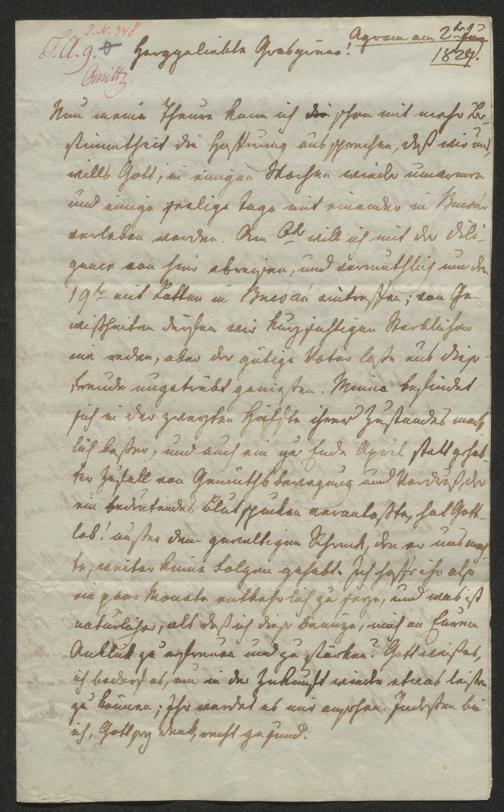 I. N. 348
Agram am 2ten
Herzgeliebte 1829.
Nun meine Theure kann ich schon mit mehr Be
stimmtheit die Hoffnung aussprechen, daß wir uns,
wills Gott, in einigen Wochen wieder umarmen
und einige seelige Tage mit einander in
verleben werden. Am 6ten will ich mit der Dili
gence von hier abreisen, und vermuthlich um den
19ten mit Lotten in eintreffen; von Ge
wißheiten dürfen wir kurzsichtigen Sterblichen
nie reden, aber der gütige Vater lasse uns diese
Freude ungetrübt genießen. Minna befindet
sich in der zweyten Hälfte ihres Zustandes merk
lich besser, und auch ein zu Ende April stattgehab
ter Zufall von Gemüthsbewegung und Verdruß, der
ein bedeutendes Blutspucken veranlaßte, hat Gott
lob! außer dem gewaltigen Schreck, den er uns mach
te, weiter keine Folgen gehabt. Ich hoffe ihr also
ein paar Monate entbehrlich zu seyn, und was ist
natürlicher, als daß ich diese benuze, mich an Eurem
Anblick zu erfreuen und zu stärken? Gott weiß es,
ich bedarf es, um in der Zukunft wieder etwas leisten
zu können; Ihr werdet es mir ansehen. Indessen bin
ich, Gott sey Dank, recht gesund.